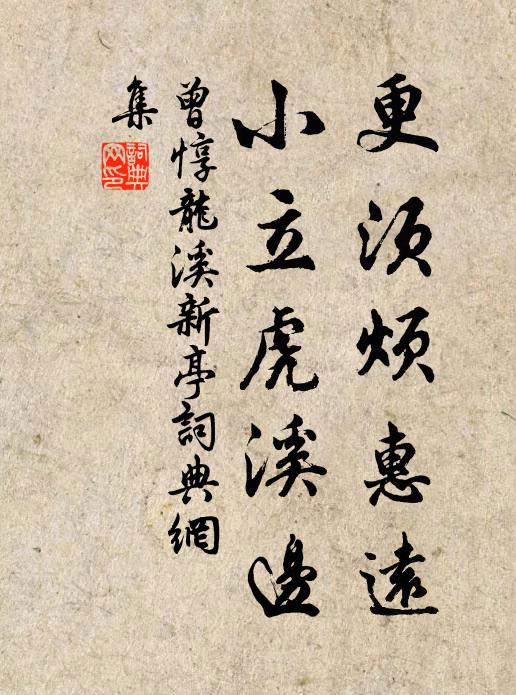 更須煩惠遠
小立虎溪邊
曾惇龍溪新亭詞典網
集
詞典
网印